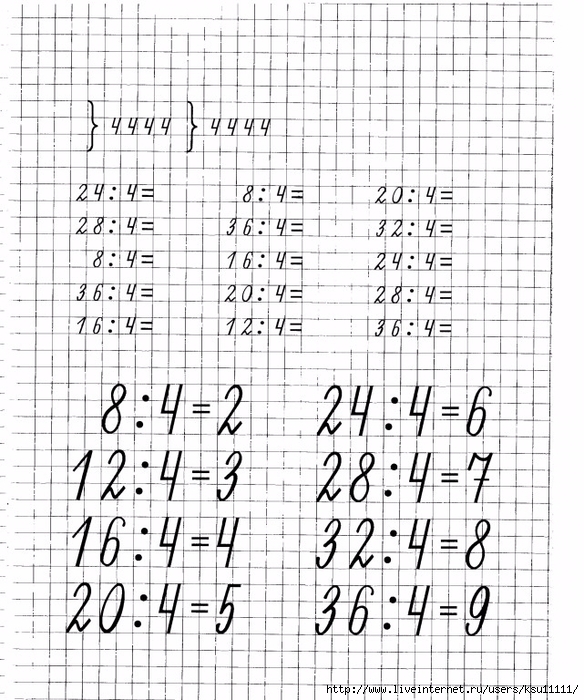 } 4444 } 4444
24:4= 8:4= 20:4=
28:4= 36:4= 32:4=
8:4= 16:4= 24:4=
36:4= 20:4= 28:4=
16:4= 12:4= 36:4=
8:4=2 24:4=6
12:4=3 28:4=7
16:4=4 32:4=8
20:4=5 36:4=9
http://www.liveinternet.ru/users/ksu11111/